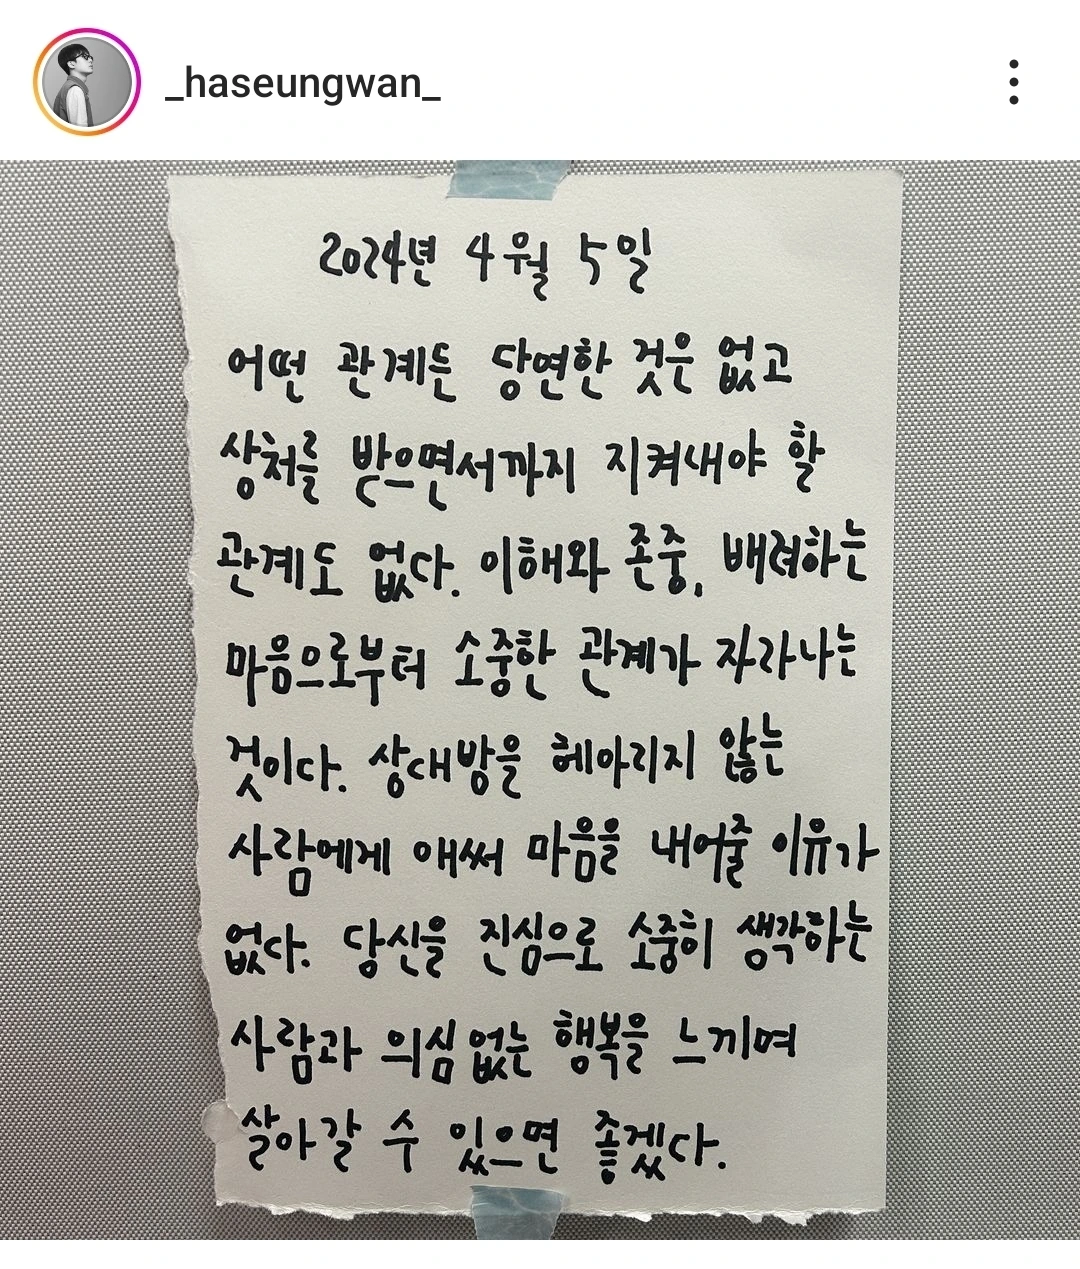 _haseungwan_
2024년 4월 5일
어떤 관계든 당연한 것은 없고
상처를 받으면서까지 지켜내야 할
관계도 없다. 이해와 존중, 배려하는
마음으로부터 소중한 관계가 자라나는
것이다. 상대방을 헤아리지 않는
사람에게 애써 마음을 내어줄 이유가
없다. 당신을 진심으로 소중히 생각하는
사람과 의심 없는 행복을 느끼며
살아갈 수 있으면 좋겠다.